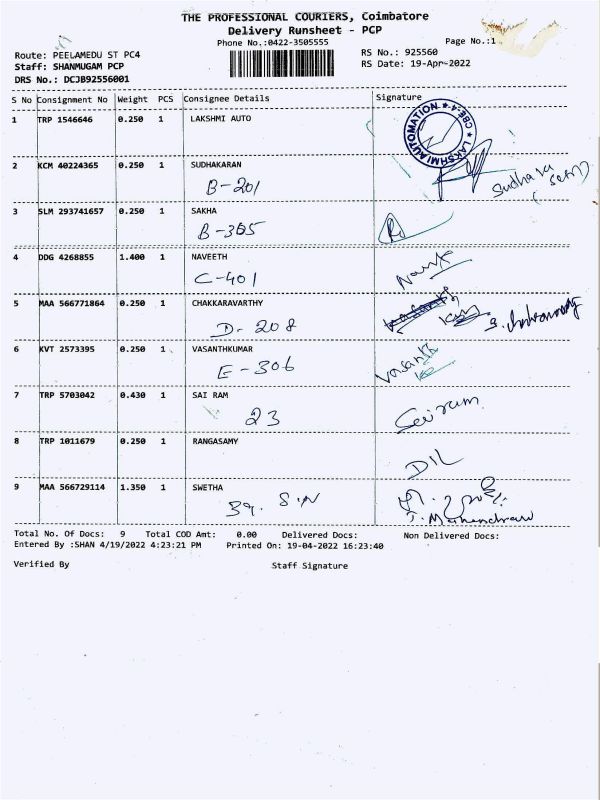 THE PROFESSIONAL COURIERS, Coimbatore
Delivery Runsheet - PCP
Phone No.:0422-3505555
Page No.:1
Route: PEELAMEDU ST PC4
RS No.: 925560
Staff: SHANMUGAM PCP
RS Date: 19-Apr-2022
DRS No.: DCJB92556001
S No Consignment No Weight PCS Consignee Details Signature
1 TRP 1546646 0.250 1 LAKSHMI AUTO
LAKSHMI AUTOMATION ★ CBE-4 ★
2 KCM 40224365 0.250 1 SUDHAKARAN
B-201
Sudhara
3 SLM 293741657 0.250 1 SAKHA
B-305
4 DDG 4268855 1.400 1 NAVEETH
C-401
5 MAA 566771864 0.250 1 CHAKKARAVARTHY
D-208
6 KVT 2573395 0.250 1 VASANTHKUMAR
E-306
Vasanth
7 TRP 5703042 0.430 1 SAI RAM
23
Sairam
8 TRP 1011679 0.250 1 RANGASAMY
DIL
9 MAA 566729114 1.350 1 SWETHA
39. S.N
Total No. Of Docs: 9 Total COD Amt: 0.00 Delivered Docs: Non Delivered Docs:
Entered By :SHAN 4/19/2022 4:23:21 PM Printed On: 19-04-2022 16:23:40
Verified By Staff Signature